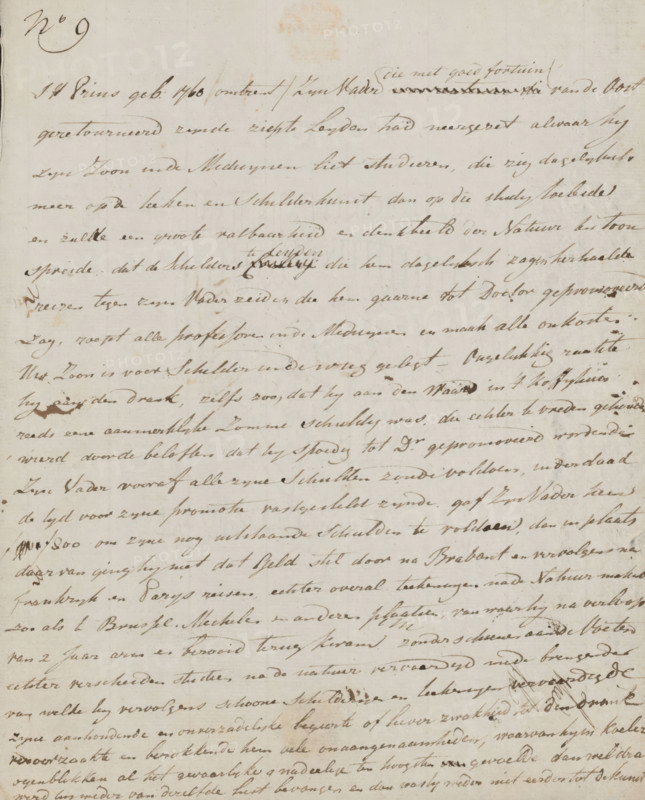 No 9
die met goed fortuin
J H Prins geb. 1760 / omtrent / Zyn Vader van de Oost
geretourneerd zynde zigte Leyden had neergezet alwaar hy
zyn Zoon in de Medicynen liet studeeren, die zig dagelyks
meer op de teeken en Schilderkunst dan op die study toeleide
en zulke een groote vatbaarheid en denkbeeld der Natuur ten toon
spreide dat de Schilders te Leyden die hem dagelyksch zagen herhaalde
reizen tegen zyn Vader zeiden die hem gaarne tot Doctor gepromoveerd
zag, roept alle professoren in de Medicynen en maak alle onkosten
Uw Zoon is voor Schilder in de wieg gelegt - Ongelukkig raakte
hy aan den drank, zelfs zoo dat hy aan den Waard in 't Koffyhuis
reeds eene aanmerklyke Zomme schuldig was, die echter te vreden gehouden
wierd door de beloften dat hy spoedig tot Dr gepromoveerd wordende
Zyn Vader vooraf alle zyne Schulden zoude voldoen, in der daad
de tyd voor zyne promotie vastgesteld zynde, gaf Zyn Vader hem
om zyne nog uitstaande Schulden te voldoen, dan in plaats
daar van ging hy met dat Geld stil door na Brabant en vervolgens na
Frankryk en Parys reisen, echter overal teekeningen na de Natuur
zoo als Brussel Mechelen en andere plaatsen, van waar hy na verloop
van 2 Jaar arm en berooid terug kwam zonder schoenen aan de Voeten
echter verscheiden studien na de natuur vervaardigd mede brengende
van welke hy vervolgens schoone Schilderyen en teekeningen vervaardigde
zyne aanhoudende en onverzadelyke begeerte of liever zwakheid tot den drank
veroorzaakte en berokkende hem vele onaangenaamheden, waarvan hy in
oogenblikken al het gevaarlyke nadeelige ten hoogsten gevoelde dan
werd hy weder van dezelfde lust bevangen en dan was hy weder niet eerder tot de Kunst